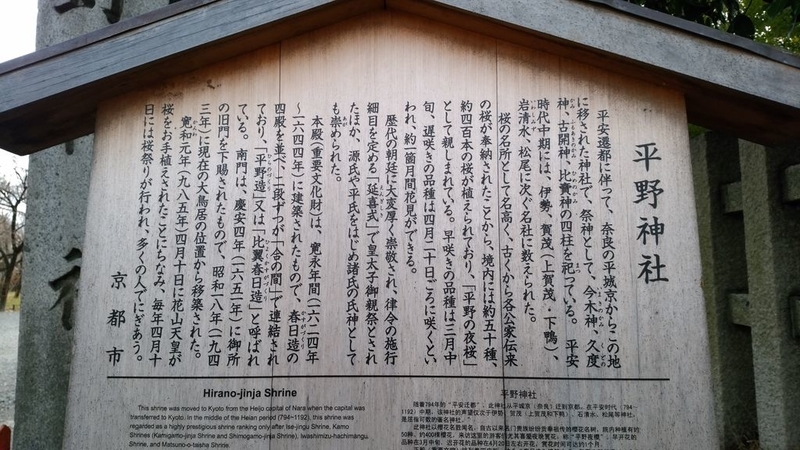 平野神社
平安遷都に伴って、奈良の平城京からこの地
に移された神社で、祭神として、今木神、久度
神、古開神、比賣神の四柱を祀っている。平安
時代中期には、伊勢、賀茂(上賀茂・下鴨)、
岩清水、松尾に次ぐ名社に数えられた。
桜の名所として名高く、古くから各公家伝来
の桜が奉納されたことから、境内には約五十種、
約四百本の桜が植えられており、「平野の夜桜」
として親しまれている。早咲きの品種は三月中
旬、遅咲きの品種は四月二十日ごろに咲くとい
われ、約一箇月間花見ができる。
歴代の朝廷に大変厚く崇敬され、律令の施行
細目を定める「延喜式」で皇太子御親祭とされ
たほか、源氏や平氏をはじめ諸氏の氏神として
も崇められた。
本殿(重要文化財)は、寛永年間(一六二四年
~一六四四年)に建築されたもので、春日造の
四殿を並べ、二殿ずつが「合の間」で連結され
ており、「平野造」又は「比翼春日造」と呼ばれ
ている。南門は、慶安四年(一六五一年)に御所
の旧門を下賜されたもので、昭和一八年(一九四
三年)に現在の大鳥居の位置から移築された。
寛和元年(九八五年)四月十日に花山天皇が
桜をお手植えされたことにちなみ、毎年四月十
日には桜祭りが行われ、多くの人でにぎあう。
京都市
Hirano-jinja Shrine
This shrine was moved to Kyoto from the Heijo capital of Nara when the capital was
transferred to Kyoto. In the middle of the Heian period (794~1192), this shrine was
regarded as a highly prestigious shrine ranking only after Ise-jingu Shrine, Kamo
Shrines (Kamigamo-jinja Shrine and Shimogamo-jinja Shrine), Iwashimizu-hachimangu
Shrine, and Matsuno-o-taisha Shrine.
平野神社